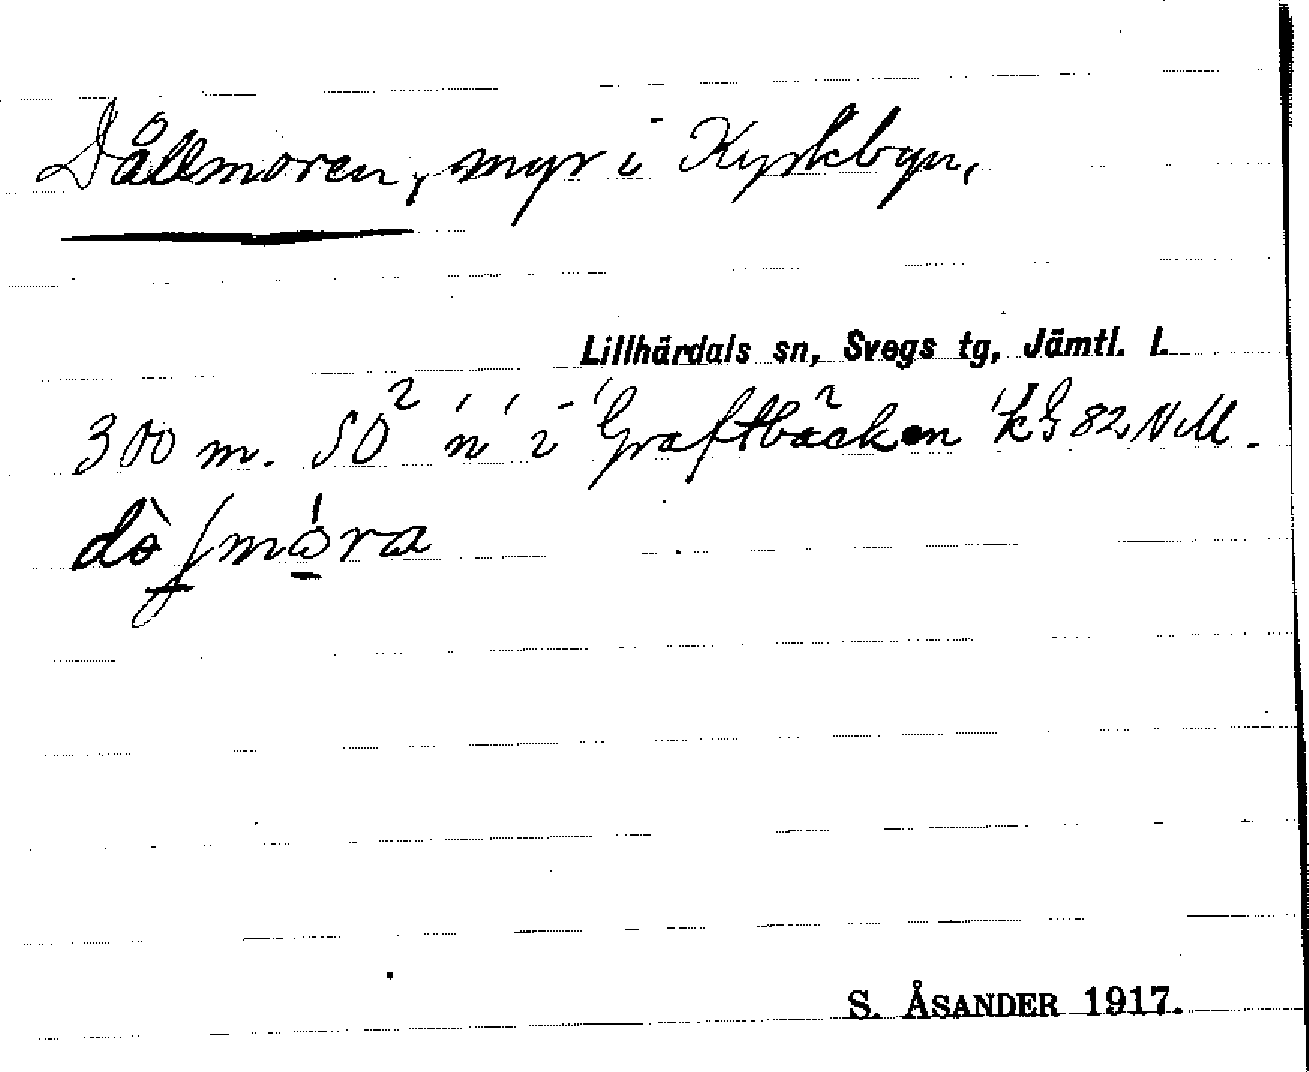 Dållmoren, myr i Kyrkbyn,
Lillhärdals sn, Svegs tg, Jämtl. l.
300 m. SO n i Graftbäcken kG 82 N M.
S. ÅSANDER 1917.